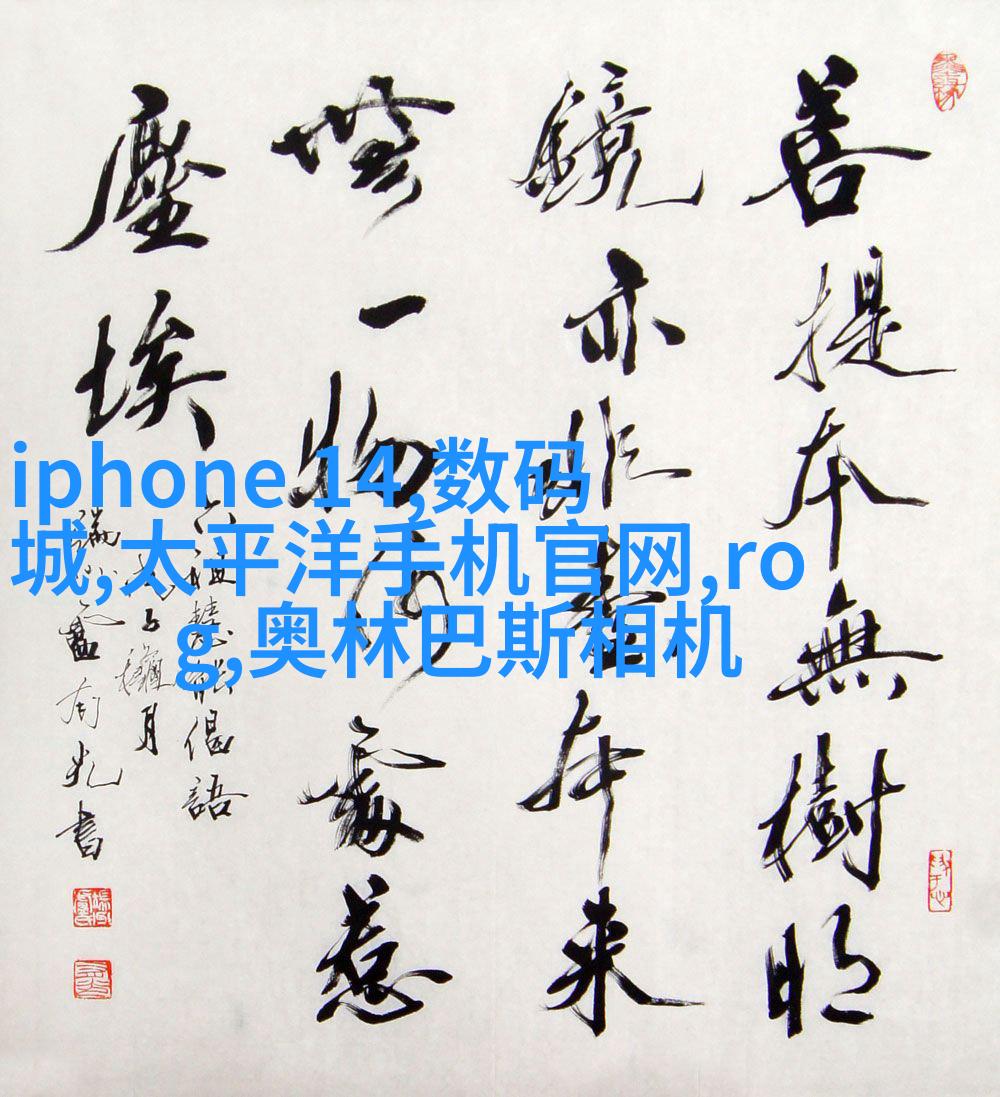 菩提本無樹明
鏡亦非臺本来
無一物何處惹
塵埃
六祖慧能偈語
月
書
iphone 14,数码
城,太平洋手机官网,ro
g,奥林巴斯相机